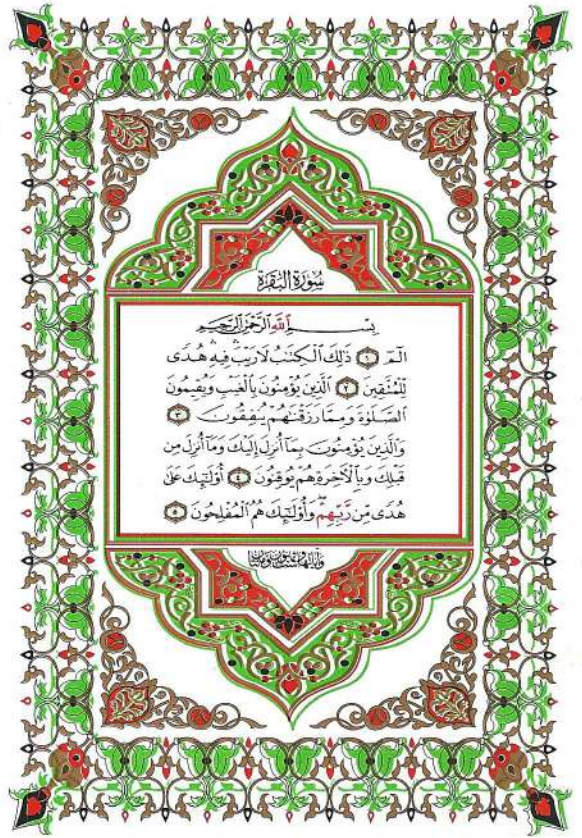 سُورَةُ الْبَقَرَةِ
بِسْمِ ٱللَّهِ ٱلرَّحْمَٰنِ ٱلرَّحِيمِ
الٓمٓ ١ ذَٰلِكَ ٱلْكِتَٰبُ لَا رَيْبَ ۛ فِيهِ ۛ هُدًى
لِّلْمُتَّقِينَ ٢ ٱلَّذِينَ يُؤْمِنُونَ بِٱلْغَيْبِ وَيُقِيمُونَ
ٱلصَّلَوٰةَ وَمِمَّا رَزَقْنَٰهُمْ يُنفِقُونَ ٣
وَٱلَّذِينَ يُؤْمِنُونَ بِمَآ أُنزِلَ إِلَيْكَ وَمَآ أُنزِلَ مِن
قَبْلِكَ وَبِٱلْأَخِرَةِ هُمْ يُوقِنُونَ ٤ أُو۟لَٰٓئِكَ عَلَىٰ
هُدًى مِّن رَّبِّهِمْ ۖ وَأُو۟لَٰٓئِكَ هُمُ ٱلْمُفْلِحُونَ ٥
وآياتها ست وثمانون ومائتان